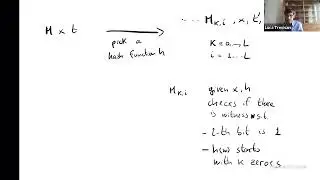 M x t
pick a
hash function h
.... M_{K,i} , x, t'
K = 0...L
i = 1....L
M_{K,i} given x, h
checks if there
is witness w s.t.
- i-th bit is 1
- h(w) starts
with K zeroes
Luca Trevisan